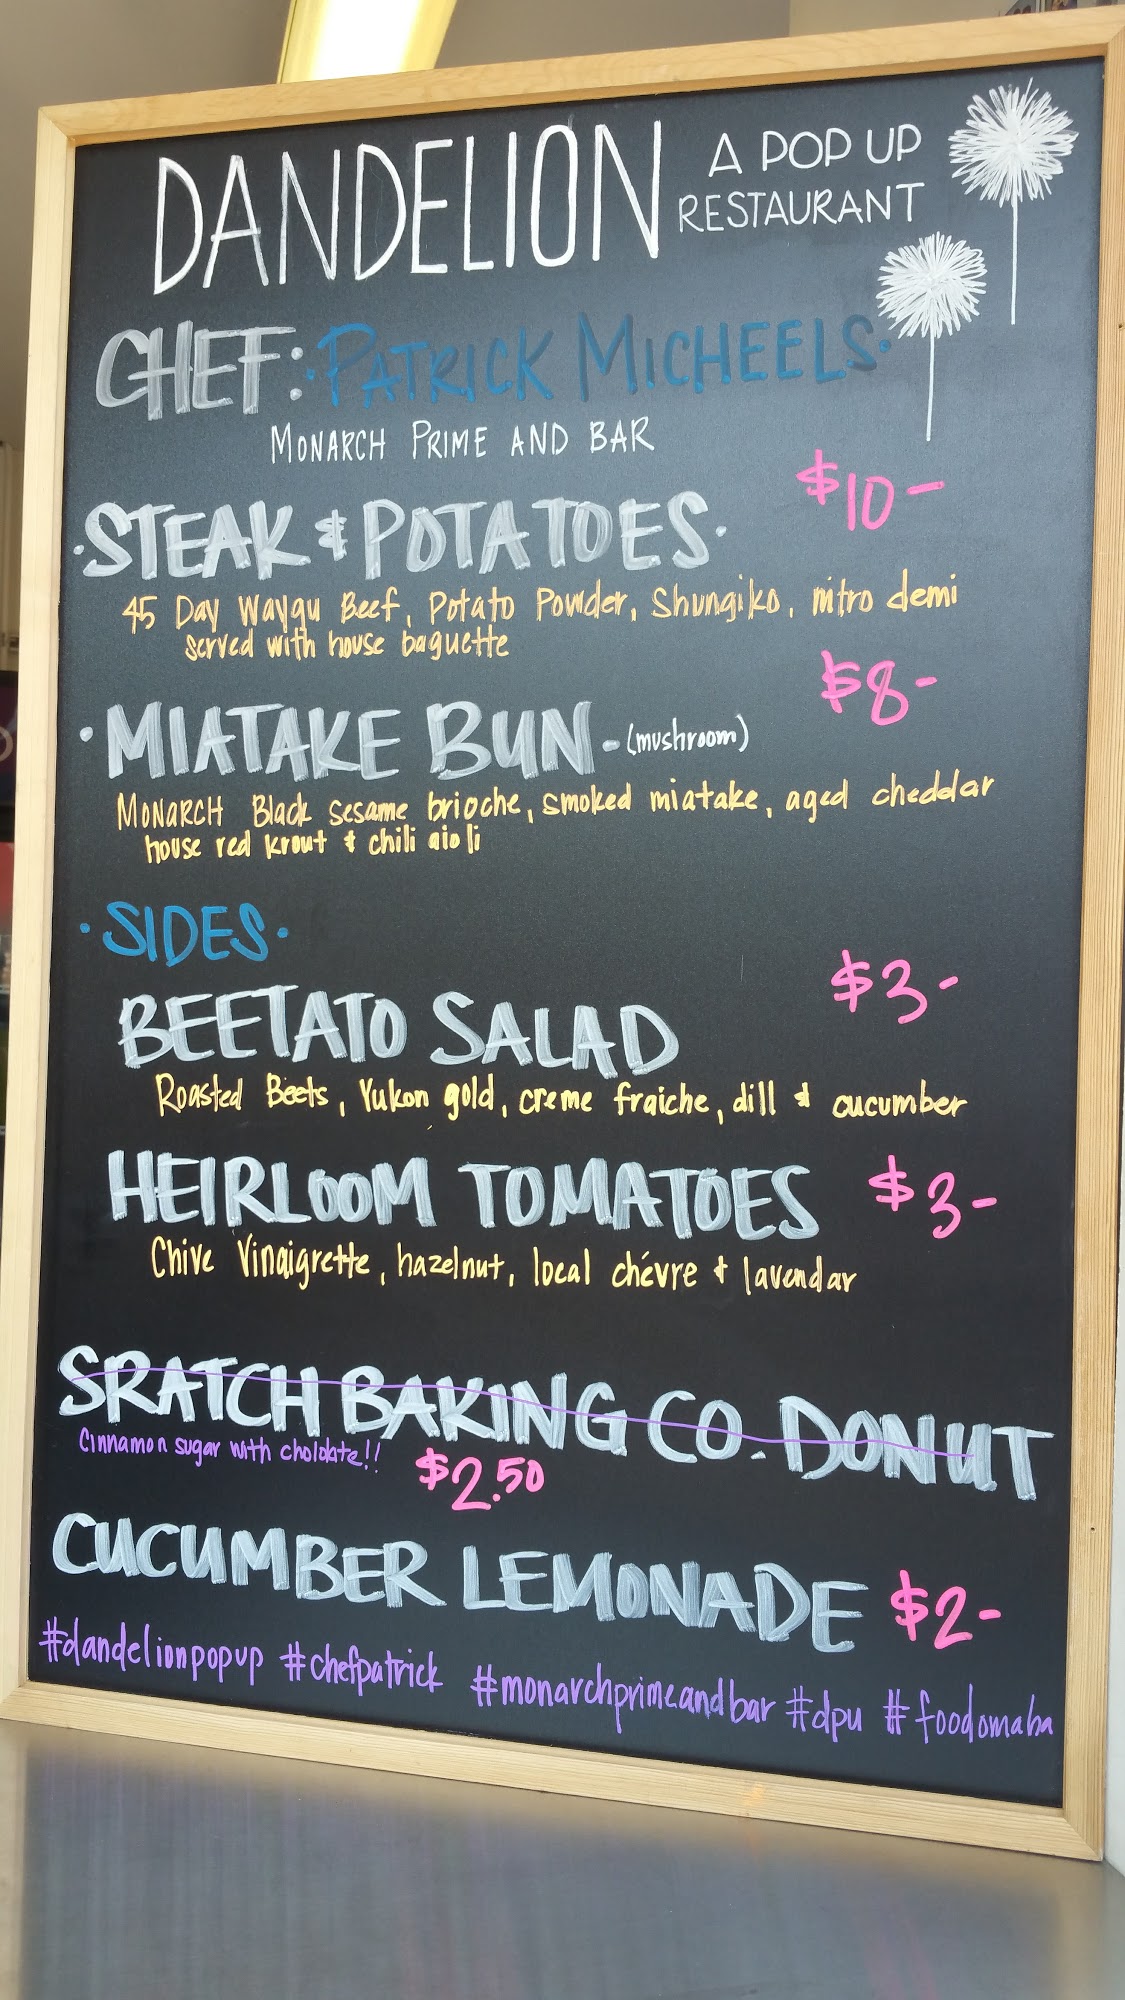 DANDELION A POP UP
RESTAURANT
CHEF: · PATRICK MICHEELS ·
MONARCH PRIME AND BAR
$10-
· STEAK & POTATOES ·
45 Day Waygu Beef, Potato Powder, Shungiko, nitro demi
served with house baguette
$8-
· MIATAKE BUN - (mushroom)
MONARCH Black sesame brioche, smoked miatake, aged cheddar
house red krout & chili aioli
· SIDES ·
$3-
BEETATO SALAD
Roasted Beets, Yukon gold, creme fraiche, dill & cucumber
HEIRLOOM TOMATOES $3-
Chive Vinaigrette, hazelnut, local chévre & lavendar
SRATCH BAKING CO. DONUT
Cinnamon sugar with chololate!! $2.50
CUCUMBER LEMONADE $2-
#dandelionpopup #chefpatrick #monarchprimeandbar #dpu #foodomaha